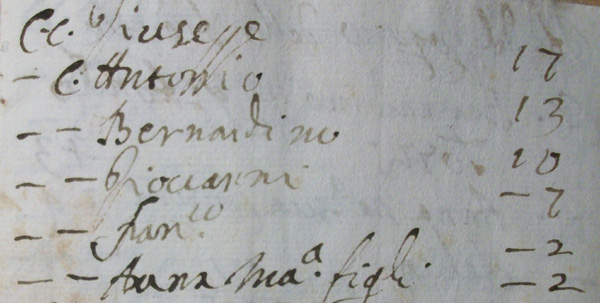 C. c. Giuseppe 17
– C. Antonio 13
– – Bernardino 10
– – Giovanni – 7
– – Fran.co – 2
– – Anna Ma.a figli – 2